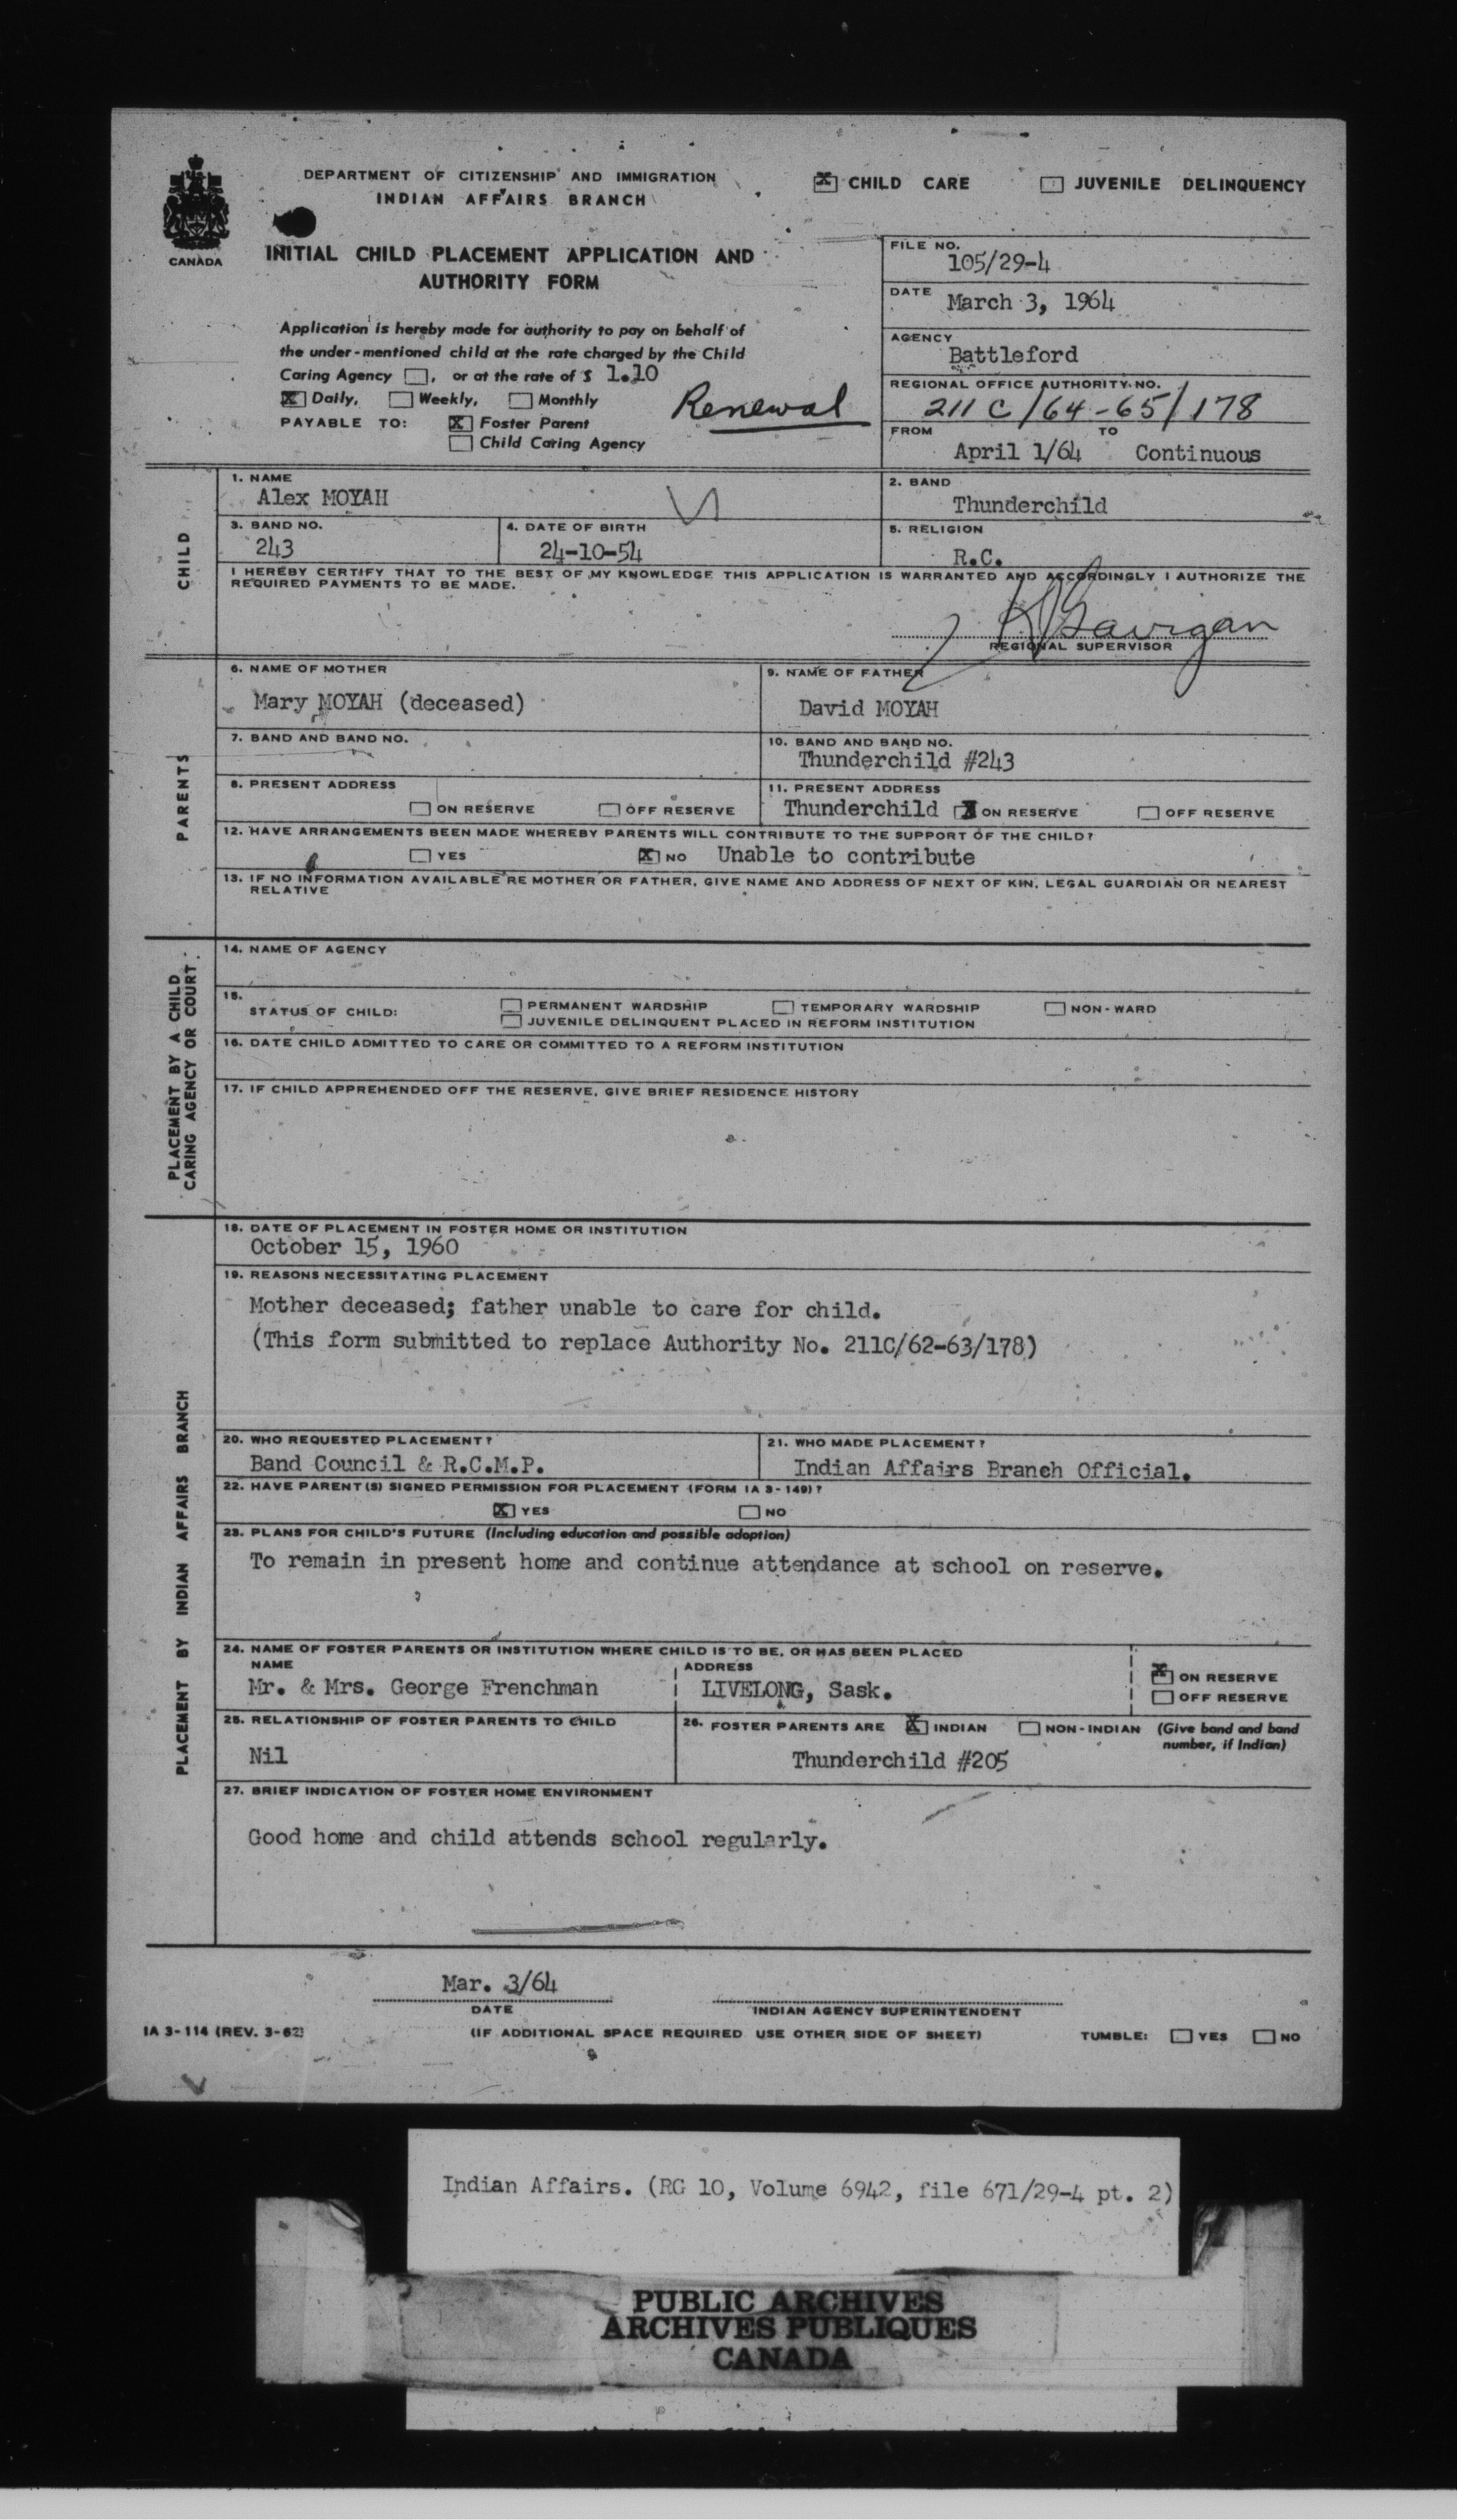 DEPARTMENT OF CITIZENSHIP AND IMMIGRATION
INDIAN AFFAIRS BRANCH
☒ CHILD CARE ☐ JUVENILE DELINQUENCY
CANADA
INITIAL CHILD PLACEMENT APPLICATION AND
AUTHORITY FORM
FILE NO.
105/29-4
DATE
March 3, 1964
Application is hereby made for authority to pay on behalf of
the under-mentioned child at the rate charged by the Child
Caring Agency ☐, or at the rate of $ 1.10
☒ Daily, ☐ Weekly, ☐ Monthly
PAYABLE TO: ☒ Foster Parent
☐ Child Caring Agency
Renewal
AGENCY
Battleford
REGIONAL OFFICE AUTHORITY NO.
211 C/64-65/178
FROM TO
April 1/64 Continuous
CHILD
1. NAME
Alex MOYAH
2. BAND
Thunderchild
3. BAND NO.
243
4. DATE OF BIRTH
24-10-54
5. RELIGION
R.C.
I HEREBY CERTIFY THAT TO THE BEST OF MY KNOWLEDGE THIS APPLICATION IS WARRANTED AND ACCORDINGLY I AUTHORIZE THE
REQUIRED PAYMENTS TO BE MADE.
REGIONAL SUPERVISOR
PARENTS
6. NAME OF MOTHER
Mary MOYAH (deceased)
9. NAME OF FATHER
David MOYAH
7. BAND AND BAND NO.
10. BAND AND BAND NO.
Thunderchild #243
8. PRESENT ADDRESS
☐ ON RESERVE ☐ OFF RESERVE
11. PRESENT ADDRESS
Thunderchild ☒ ON RESERVE ☐ OFF RESERVE
12. HAVE ARRANGEMENTS BEEN MADE WHEREBY PARENTS WILL CONTRIBUTE TO THE SUPPORT OF THE CHILD?
☐ YES ☒ NO Unable to contribute
13. IF NO INFORMATION AVAILABLE RE MOTHER OR FATHER, GIVE NAME AND ADDRESS OF NEXT OF KIN, LEGAL GUARDIAN OR NEAREST
RELATIVE
PLACEMENT BY A CHILD
CARING AGENCY OR COURT
14. NAME OF AGENCY
15.
STATUS OF CHILD: ☐ PERMANENT WARDSHIP ☐ TEMPORARY WARDSHIP ☐ NON-WARD
☐ JUVENILE DELINQUENT PLACED IN REFORM INSTITUTION
16. DATE CHILD ADMITTED TO CARE OR COMMITTED TO A REFORM INSTITUTION
17. IF CHILD APPREHENDED OFF THE RESERVE, GIVE BRIEF RESIDENCE HISTORY
PLACEMENT BY INDIAN AFFAIRS BRANCH
18. DATE OF PLACEMENT IN FOSTER HOME OR INSTITUTION
October 15, 1960
19. REASONS NECESSITATING PLACEMENT
Mother deceased; father unable to care for child.
(This form submitted to replace Authority No. 211C/62-63/178)
20. WHO REQUESTED PLACEMENT?
Band Council & R.C.M.P.
21. WHO MADE PLACEMENT?
Indian Affairs Branch Official.
22. HAVE PARENT(S) SIGNED PERMISSION FOR PLACEMENT (FORM IA 3-149)?
☒ YES ☐ NO
23. PLANS FOR CHILD'S FUTURE (Including education and possible adoption)
To remain in present home and continue attendance at school on reserve.
24. NAME OF FOSTER PARENTS OR INSTITUTION WHERE CHILD IS TO BE, OR HAS BEEN PLACED
NAME
Mr. & Mrs. George Frenchman
ADDRESS
LIVELONG, Sask.
☒ ON RESERVE
☐ OFF RESERVE
25. RELATIONSHIP OF FOSTER PARENTS TO CHILD
Nil
26. FOSTER PARENTS ARE ☒ INDIAN ☐ NON-INDIAN (Give band and band
number, if Indian)
Thunderchild #205
27. BRIEF INDICATION OF FOSTER HOME ENVIRONMENT
Good home and child attends school regularly.
Mar. 3/64
DATE
INDIAN AGENCY SUPERINTENDENT
IA 3-114 (REV. 3-62)
(IF ADDITIONAL SPACE REQUIRED USE OTHER SIDE OF SHEET)
TUMBLE: ☐ YES ☐ NO
Indian Affairs. (RG 10, Volume 6942, file 671/29-4 pt. 2)
PUBLIC ARCHIVES
ARCHIVES PUBLIQUES
CANADA